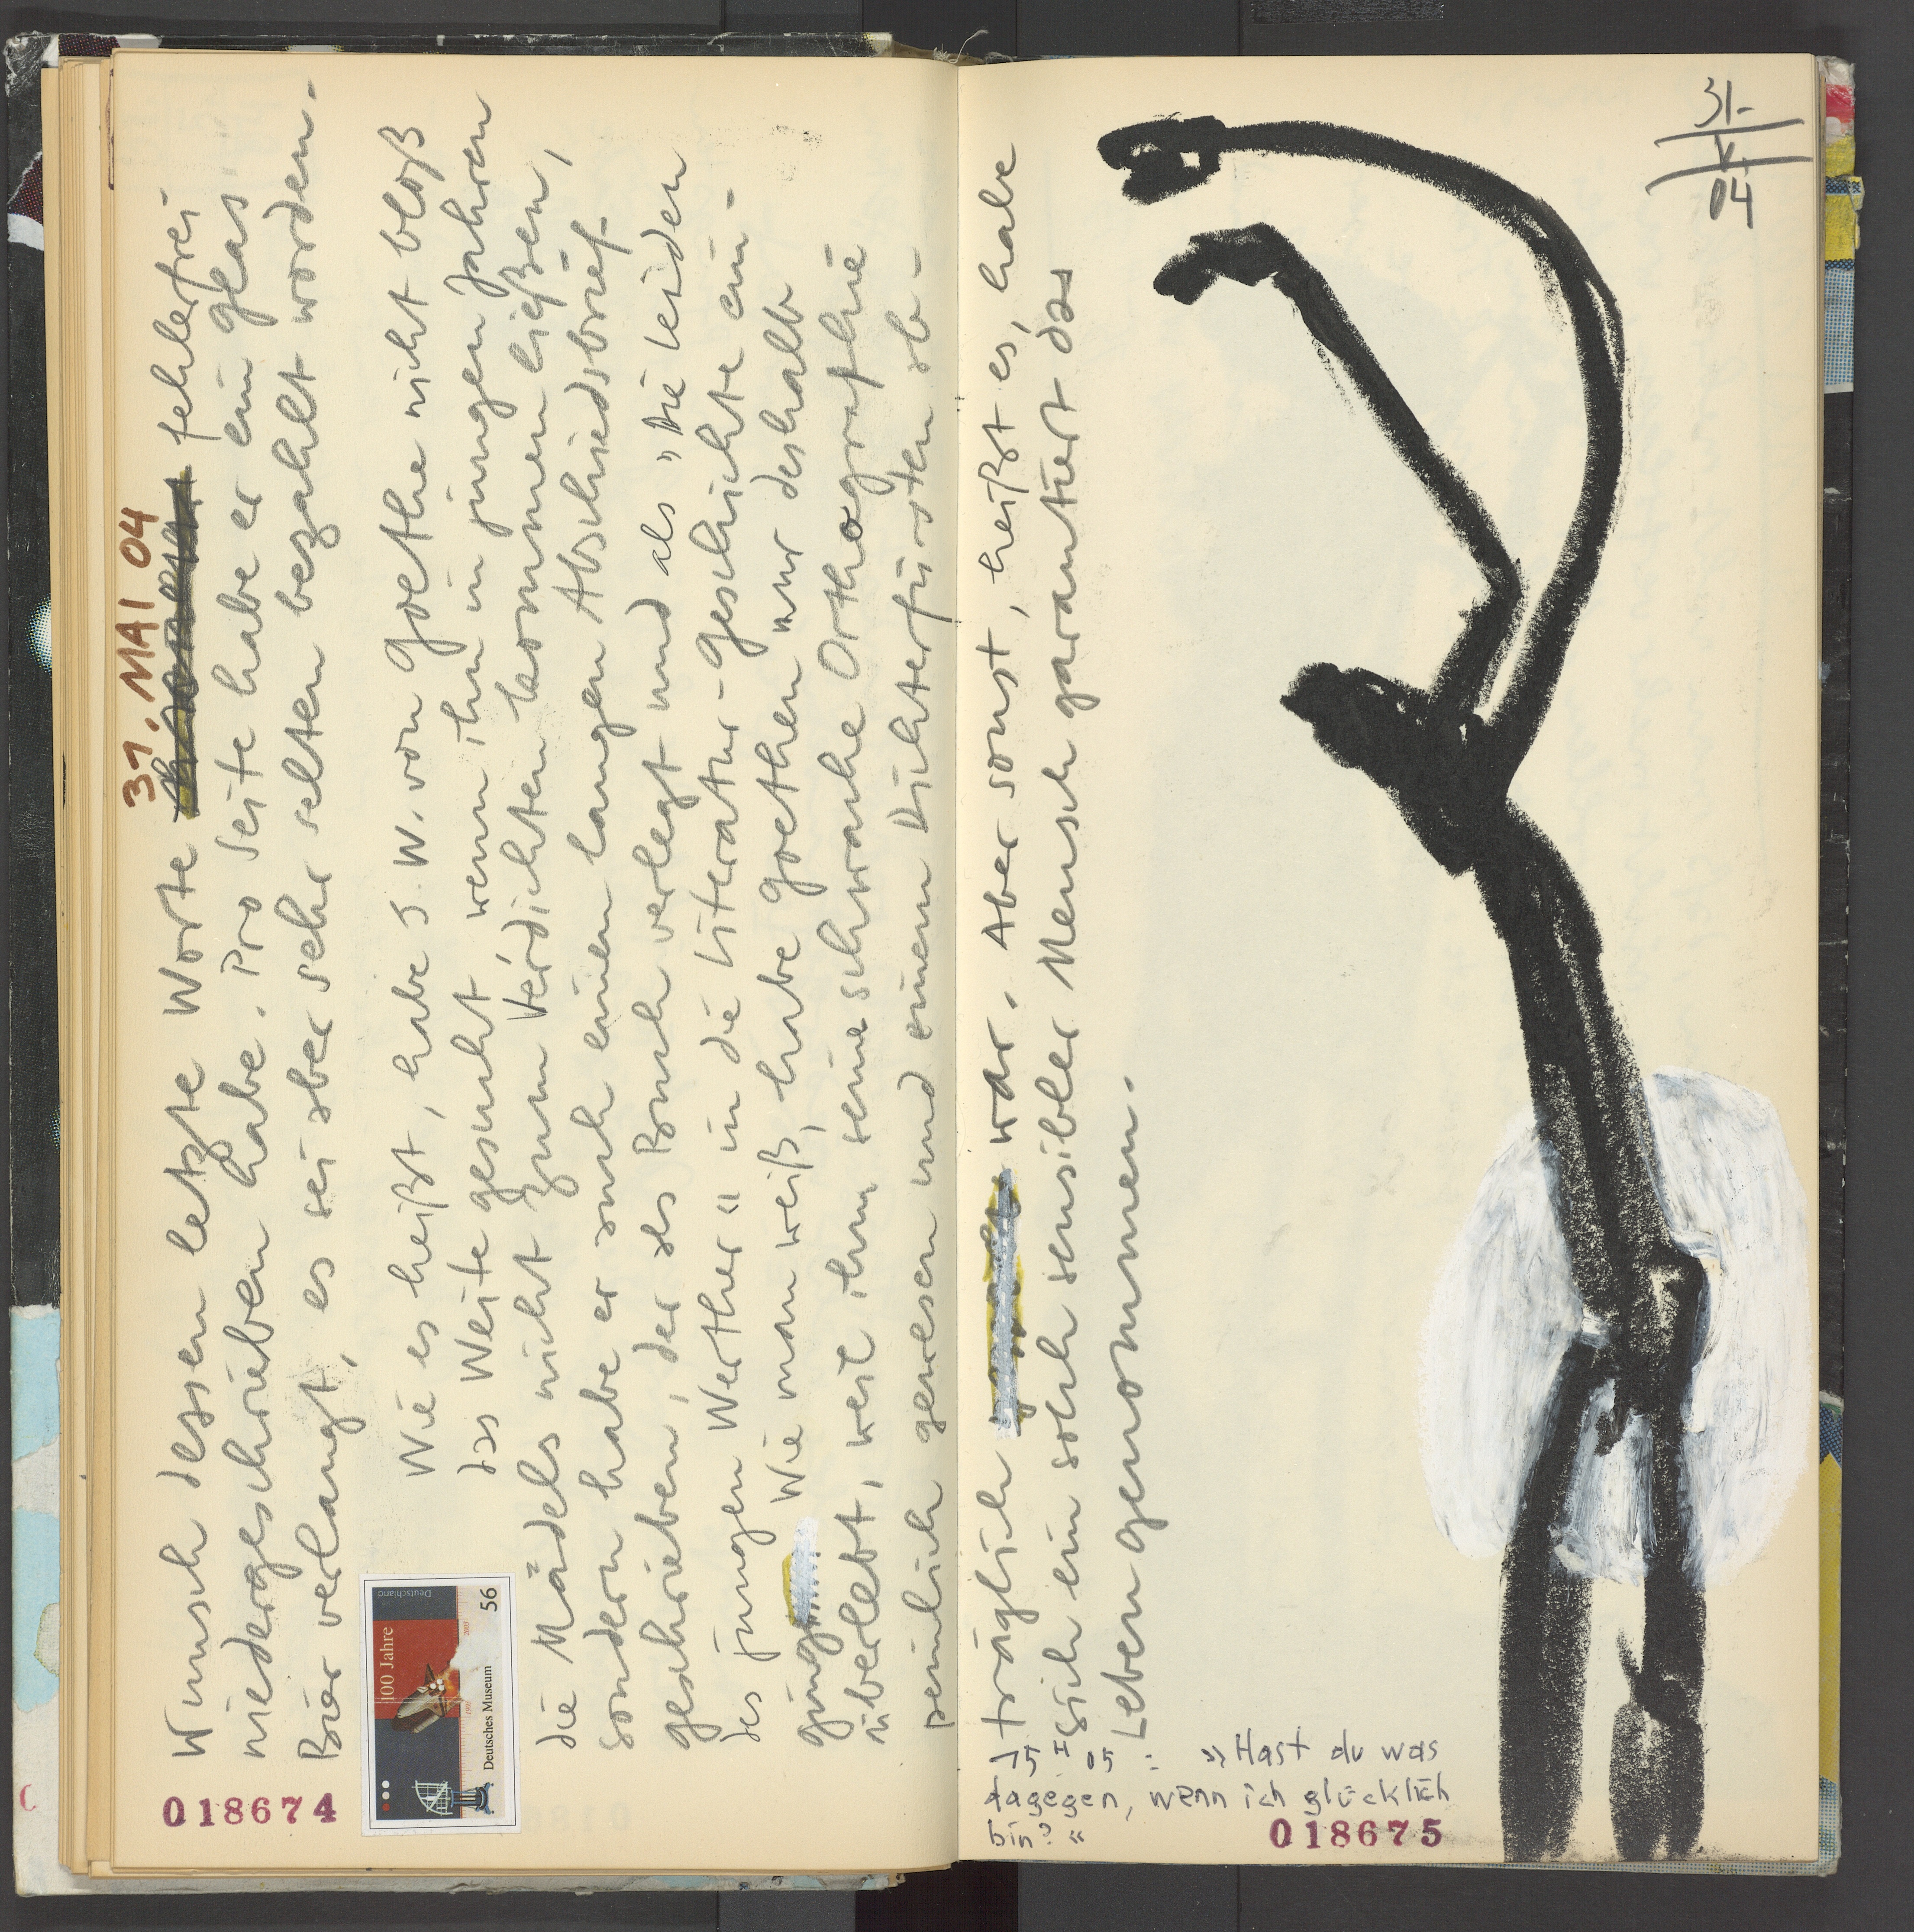 31. MAI 04
Wunsch dessen letzte Worte fehlerfrei
niedergeschrieben habe. Pro Seite habe er ein Glas
Bier verlangt, es sei aber sehr selten bezahlt worden.
Wie es heißt, habe J. W. von Goethe nicht bloß
das Weite gesucht, wenn ihn in jungen Jahren
die Mädels nicht zum Verdichten kommen ließen,
sondern habe er auch einen langen Abschiedsbrief
geschrieben, der als Buch verlegt und als "Die Leiden
des jungen Werther" in die Literatur-Geschichte ein-
ging.
Wie man weiß, habe Goethen nur deshalb
überlebt, weil ihm seine schwache Orthografie
peinlich gewesen und einem Dichterfürsten ab-
träglich war. Aber sonst, heißt es, habe
sich ein solch sensibler Mensch garantiert das
Leben genommen.
100 Jahre
Deutschland
1903
2003
Deutsches Museum
56
018674
15 I 05 : »Hast du was
dagegen, wenn ich glücklich
bin?«
018675